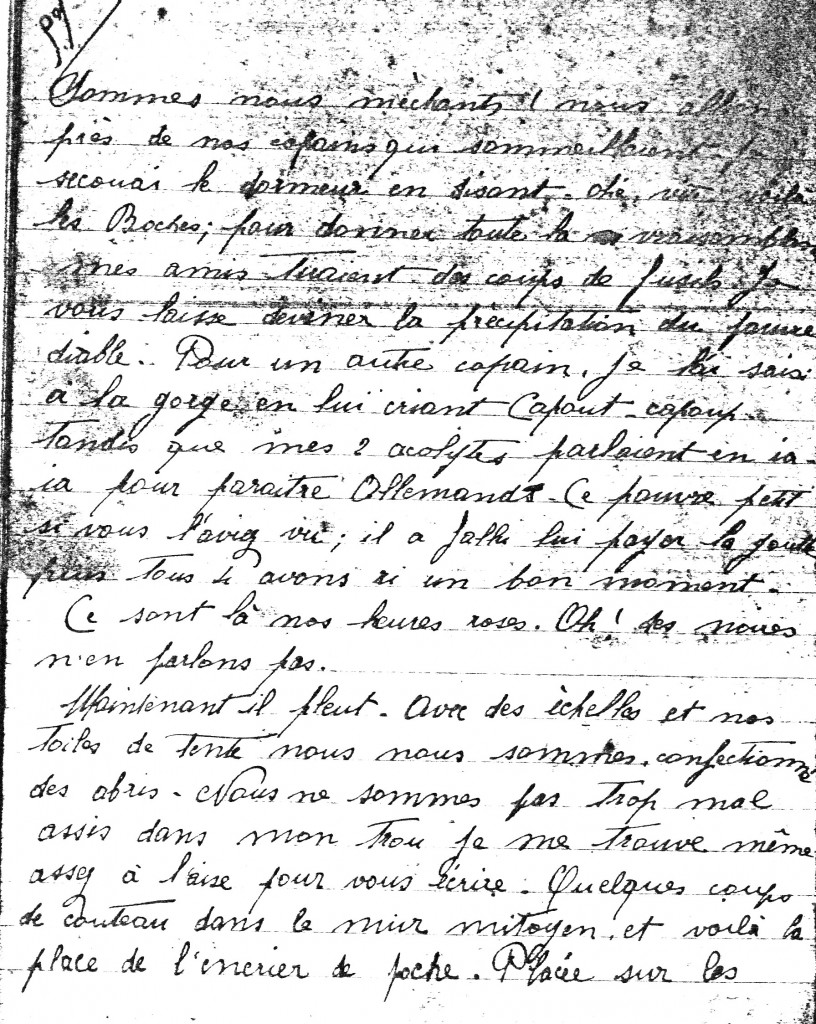 Sommes nous méchants ! nous allons
près de nos copains qui sommeillaient, je
secouai le dormeur en disant voilà
les Boches ; pour donner toute la vraisemblan
mes amis tiraient des coups de fusils. Je
vous laisse deviner la précipitation du pauvre
diable. Pour un autre copain, je l'ai saisi
à la gorge en lui criant Capout - capout
tandis que mes 2 acolytes parlaient en ia -
ia pour paraître Allemands - Ce pauvre petit
si vous l'aviez vu ; il a fallu lui payer la goutte
puis tous 4 avons ri un bon moment.
Ce sont là nos heures roses. Oh ! des noires
n'en parlons pas.
Maintenant il pleut - Avec des échelles et nos
toiles de tente nous nous sommes confectionné
des abris - Nous ne sommes pas trop mal
assis dans mon trou je me trouve même
assez à l'aise pour vous écrire. Quelques coups
de couteau dans le mur mitoyen, et voilà la
place de l'encrier de poche. Placée sur les